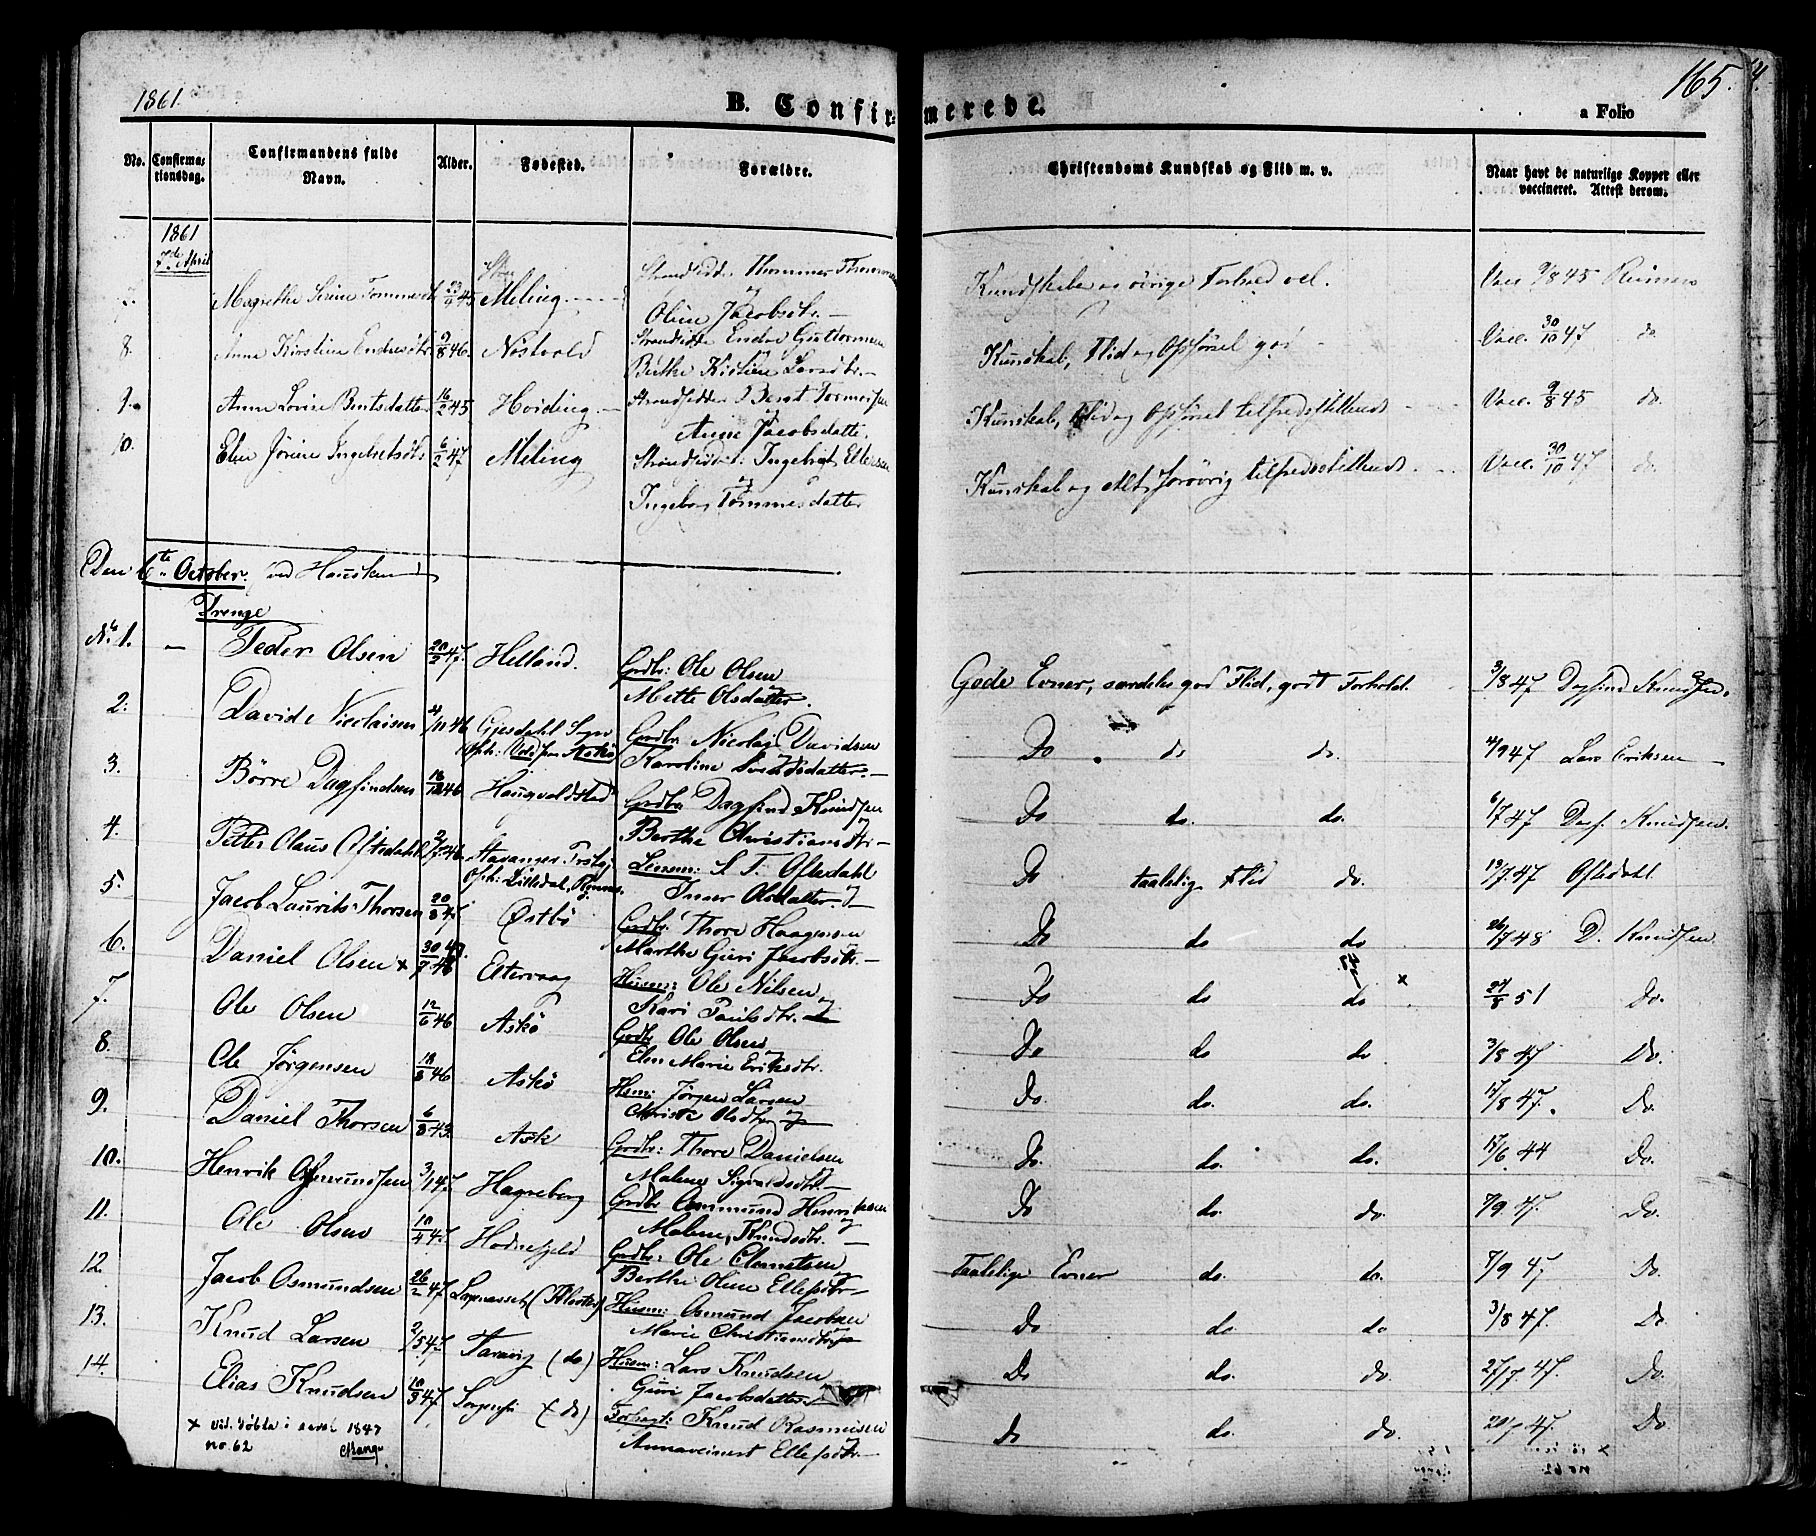 1861.
B. Confirmerede.
165.
a Folio
No.
Confirmationsdag.
Confirmandens fulde Navn.
Alder.
Fødested.
Forældre.
Christendoms Kundskab og Flid m. v.
Naar havt de naturlige Kopper eller vaccineret. Attest derom.
1861
7de April
7. Magrethe Serine 23/9 45 Meling
Olene Jacobsdtr.
Kundskaber og øvrige Forhold vel. Vacc. 9/8 45
8. Anne Kirstine Endresdtr 9/8 46 Nøstvold Strandsidder Endre Guttormsen
Berthe Kistine Larsdtr.
Kunskab, Flid og Opførsel god Vacc. 30/10 47 do
9. Anne Lovise Bentsdatter 16/2 45 Hviding Strandsidder Bengt Tormorsen
og
Anne Jacobsdatter.
Kunskab, Flid og Opførsel tilfredsstillende Vacc. 9/8 45 do.
10. Elen Jørine Ingebretsdtr 6/2 47 Meling Strandsidder: Ingebrigt Ellefsen
og
Ingeborg Tommesdatter
Kunskab og Alt forøvrig tilfredsstillende. Vacc. 30/10 47 do
Den 6te October. ved Hausken
Drenge
No. 1. — Peder Olsen 20/2 47. Helland. Grdbr: Ole Olsen
Mette Olsdatter.
Gode Evner, særdeles god Flid, godt Forhold. 3/8 47 Dagfind Knudsen.
2. David Nicolaisen 4/11 46 Gjesdahl Sogn
Oph: Vold paa Askø
Grdbr. Nicolai Davidsen
Karoline Svendsdatter.
Do do do. 4/9 47 Lars Eriksen
3. Børre Dagfindsen 46 Haugvaldsted Grdbr Dagfind Knudsen
Berthe Christiansdtr
Do do. do. 6/7 47 Dagf. Knudsen.
4. Peter Claus Oftedahl 46 Stavanger
Oph: Lilledal,
Lensm: S. T. Oftedahl
Olsdatter.
Do taalelig Flid do. 19/7 47 Oftedahl.
5. Jacob Laurits Thorsen 20/8 47. Østbø Grdbr: Thore Haagensen
Marthe Guri Jacobsdtr.
Do do do 26/7 48 D. Knudsen
6. Daniel Olsen x 30/9 46 Eltervaag Husm: Ole Nilsen
Kari Paulsdtr.
Do do do x 24/8 51 Do.
7. Ole Olsen 12/6 46 Askø Grdbr Ole Olsen
Elen Marie Eriksdtr.
Do do do 3/8 47 Do.
8. Ole Jørgensen 18/8 46 Askø Husm: Jørgen Larsen
Christi Olsdtr
Do. do. do. 17/8 47. Do.
9. Daniel Thorsen 6/8 43. Ask Grdbr: Thore Danielsen
Malene Sigvaldsdtr
Do. do. do. 17/6 44 Do.
10. Henrik Asmundsen 3/1 47 Hagreberg Grdbr Osmund Henriksen
Malene Knudsdtr.
Do do. do. 7/9 47. Do.
11. Ole Olsen 10/4 47 Hodnefjeld Grdbr: Ole Clemetsen
Berthe Oline Ellefsdtr
Taalelige Evner do. do. 7/9 47 Do.
12. Jacob Osmundsen 26/2 47 (Kloster) Husm: Osmund Jacobsen
Marie Christiansdtr
Do do. do 3/8 47. Do.
13. Knud Larsen 2/5 47 Faravig (do) Husm: Lars Knudsen
Guri Jacobsdatter
Do do. do. 27/7 47. Do
14. Elias Knudsen 10/3 47 (do) Knud Rasmusen
Ellefsdtr
Do do. do. 47. Do
x vid. døbte i aaret 1847
no. 62